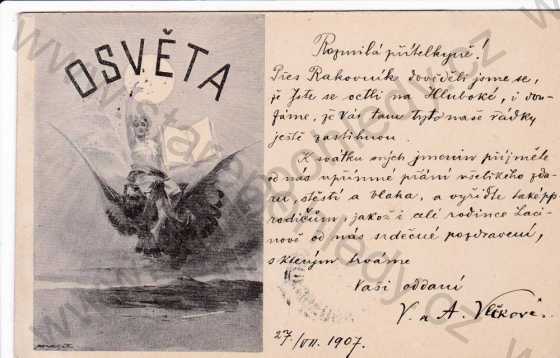 OSVĚTA
Rozmilá přítelkyně!
Přes Rakovník dověděli jsme se,
že Jste se octli na Hluboké, i dou-
fáme, že Vás tam tyto naše řádky
ještě zastihnou.
K svátku svých jmenin přijměte
od nás upřímné přání všelikého zda-
ru, štěstí a blaha, a vyřiďte také pp.
rodičům, jakož i celé rodince Laci-
nově od nás srdečné pozdravení,
s kterým trváme
Vaši oddaní
V. a A. Vlčkovi.
27/VII. 1907.